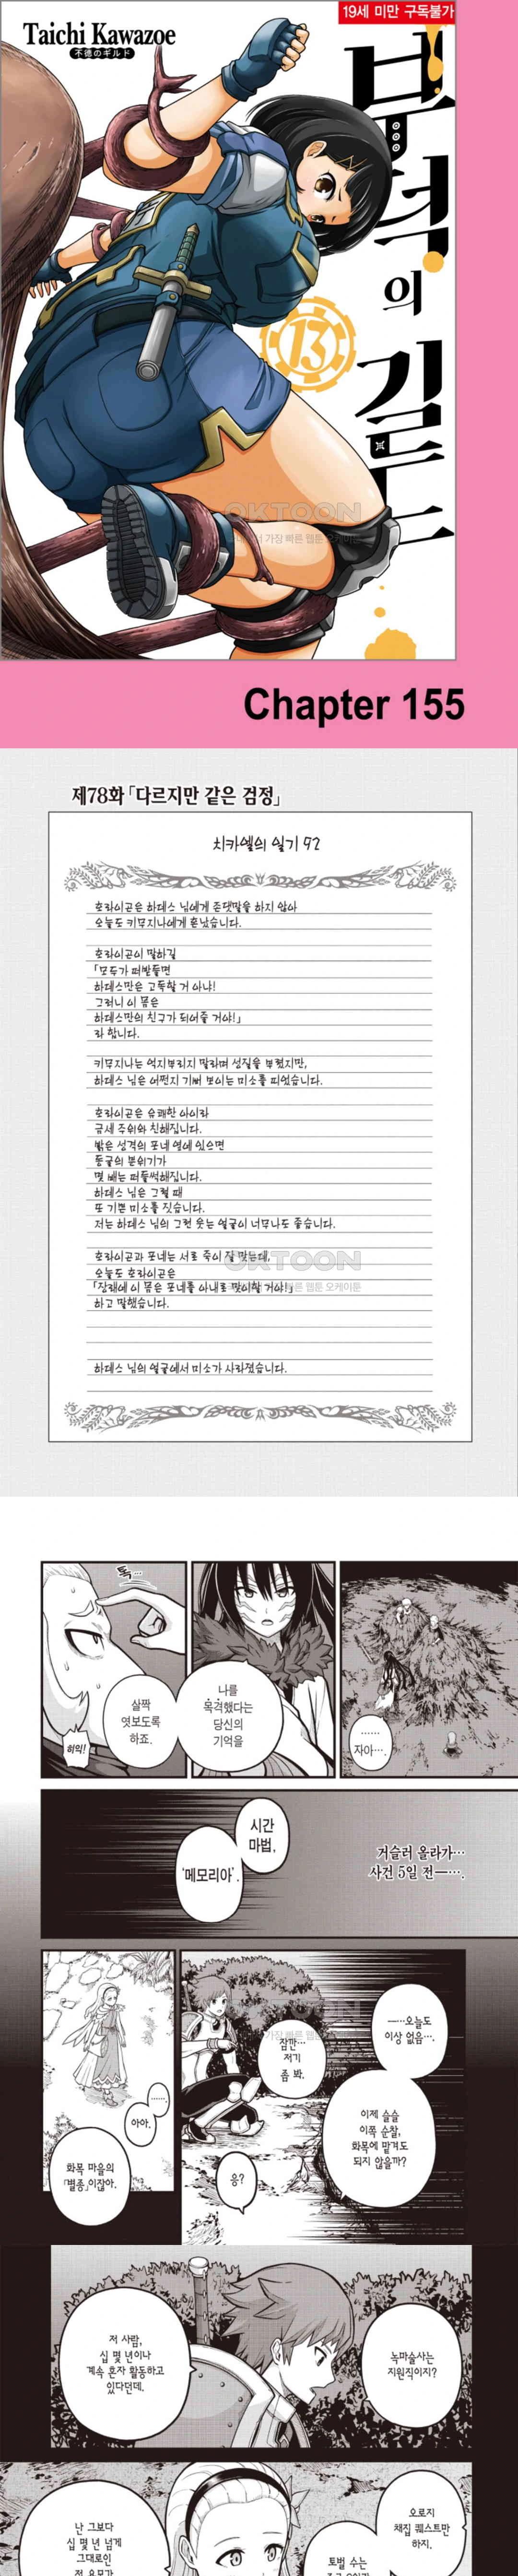 19세 미만 구독불가
Taichi Kawazoe
不徳のギルド
부덕의 길드
13
OKTOON
Chapter 155
제78화 「다르지만 같은 검정」
치카엘의 일기 92
호라이곤은 하데스 님에게 존댓말을 하지 않아
오늘도 키무지나에게 혼났습니다.
호라이곤이 말하길
「모두가 떠받들면
하데스만은 고독할 거 아냐!
그러니 이 몸은
하데스만의 친구가 되어줄 거야!」
라 합니다.
키무지나는 억지부리지 말라며 성질을 부렸지만,
하데스 님은 어쩐지 기뻐 보이는 미소를 띠었습니다.
호라이곤은 유쾌한 아이라
금세 주위와 친해집니다.
밝은 성격의 포네 옆에 있으면
동굴의 분위기가
몇 배는 떠들썩해집니다.
하데스 님은 그럴 때
또 기쁜 미소를 짓습니다.
저는 하데스 님의 그런 웃는 얼굴이 너무나도 좋습니다.
호라이곤과 포네는 서로 죽이 잘 맞는데,
오늘도 호라이곤은
「장래에 이 몸은 포네를 아내로 맞이할 거야!」
하고 말했습니다.
하데스 님의 얼굴에서 미소가 사라졌습니다.
OKTOON
……
자아….
나를
목격했다는
당신의
기억을
톡…
살짝
엿보도록
하죠.
히익!
시간
마법,
'메모리아'.
거슬러 올라가…
사건 5일 전―….
―…오늘도
이상 없음….
이제 슬슬
이쪽 순찰,
화목에 맡겨도
되지 않을까?
잠깐…
저기
좀 봐.
응?
……
아아.
화목 마을의
「별종」이잖아.
녹마술사는
지원직이지?
저 사람,
십 몇 년이나
계속 혼자 활동하고
있다던데.
오로지
채집 퀘스트만
하지,
토벌 수는
난 그보다
십 몇 년 넘게
그대로인